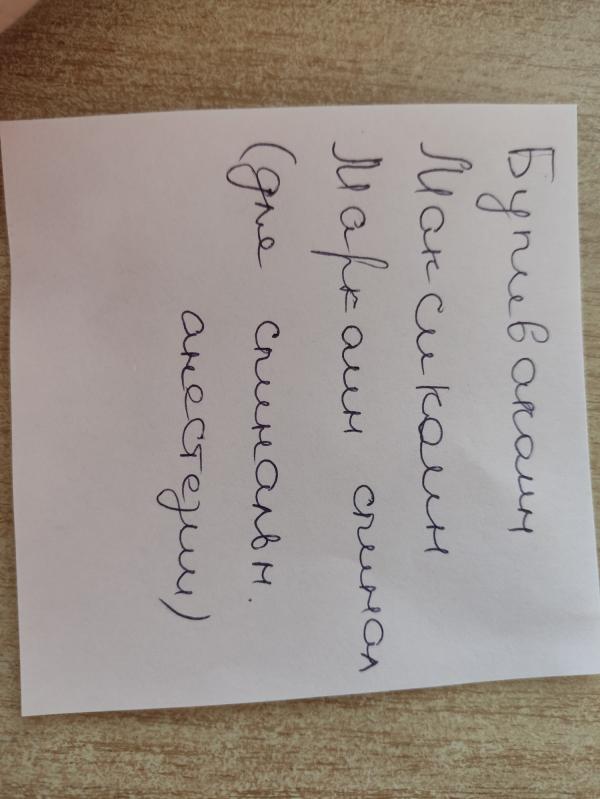 Бупивакаин
Максикаин
Маркаин спинал
(для спинальн.
анестезии)